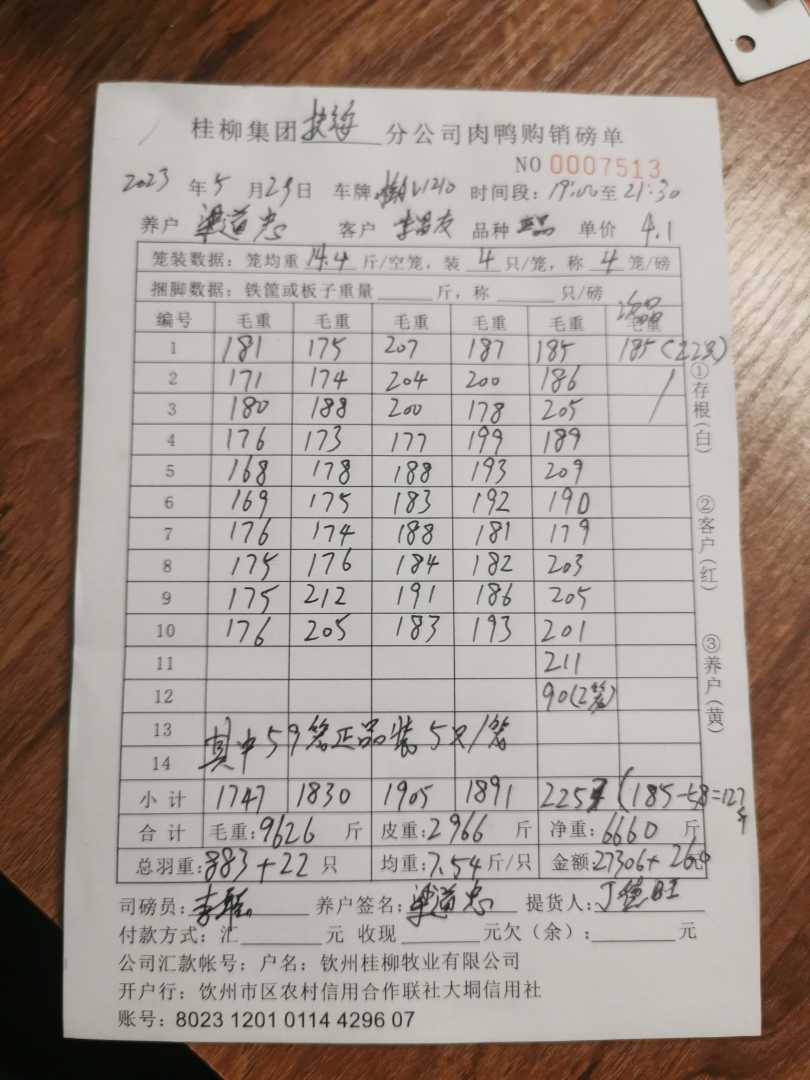 桂柳集团扶绥分公司肉鸭购销磅单
NO 0007513
2023年5月29日 车牌: L1210 时间段:19:00至21:30
养户 梁道忠 客户 李昌友 品种 正品 单价 4.1
笼装数据:笼均重14.4斤/空笼,装4只/笼,称4笼/磅
捆脚数据:铁筐或板子重量____斤,称____只/磅
次品
编号 毛重 毛重 毛重 毛重 毛重 毛重
1 181 175 207 187 185 185(22只)
2 171 174 204 200 186 /
3 180 188 200 178 205
4 176 173 177 199 189
5 168 178 188 193 209
6 169 175 183 192 190
7 176 174 188 181 179
8 175 176 184 182 203
9 175 212 191 186 205
10 176 205 183 193 201
11 211
12 90(2笼)
13 其中59笼正品装5只/笼
14
小计 1747 1830 1905 1891 2253 (185-58=127斤
合计 毛重:9626斤 皮重:2966斤 净重:6660斤
总羽重:883+22只 均重:7.54斤/只 金额:27306+260元
司磅员: 养户签名:梁道忠 提货人:丁德旺
付款方式:汇____元 收现____元欠(余):____元
公司汇款帐号:户名:钦州桂柳牧业有限公司
开户行:饮州市区农村信用合作联社大垌信用社
账号:8023 1201 0114 4296 07
①存根(白)
②客户(红)
③养户(黄)